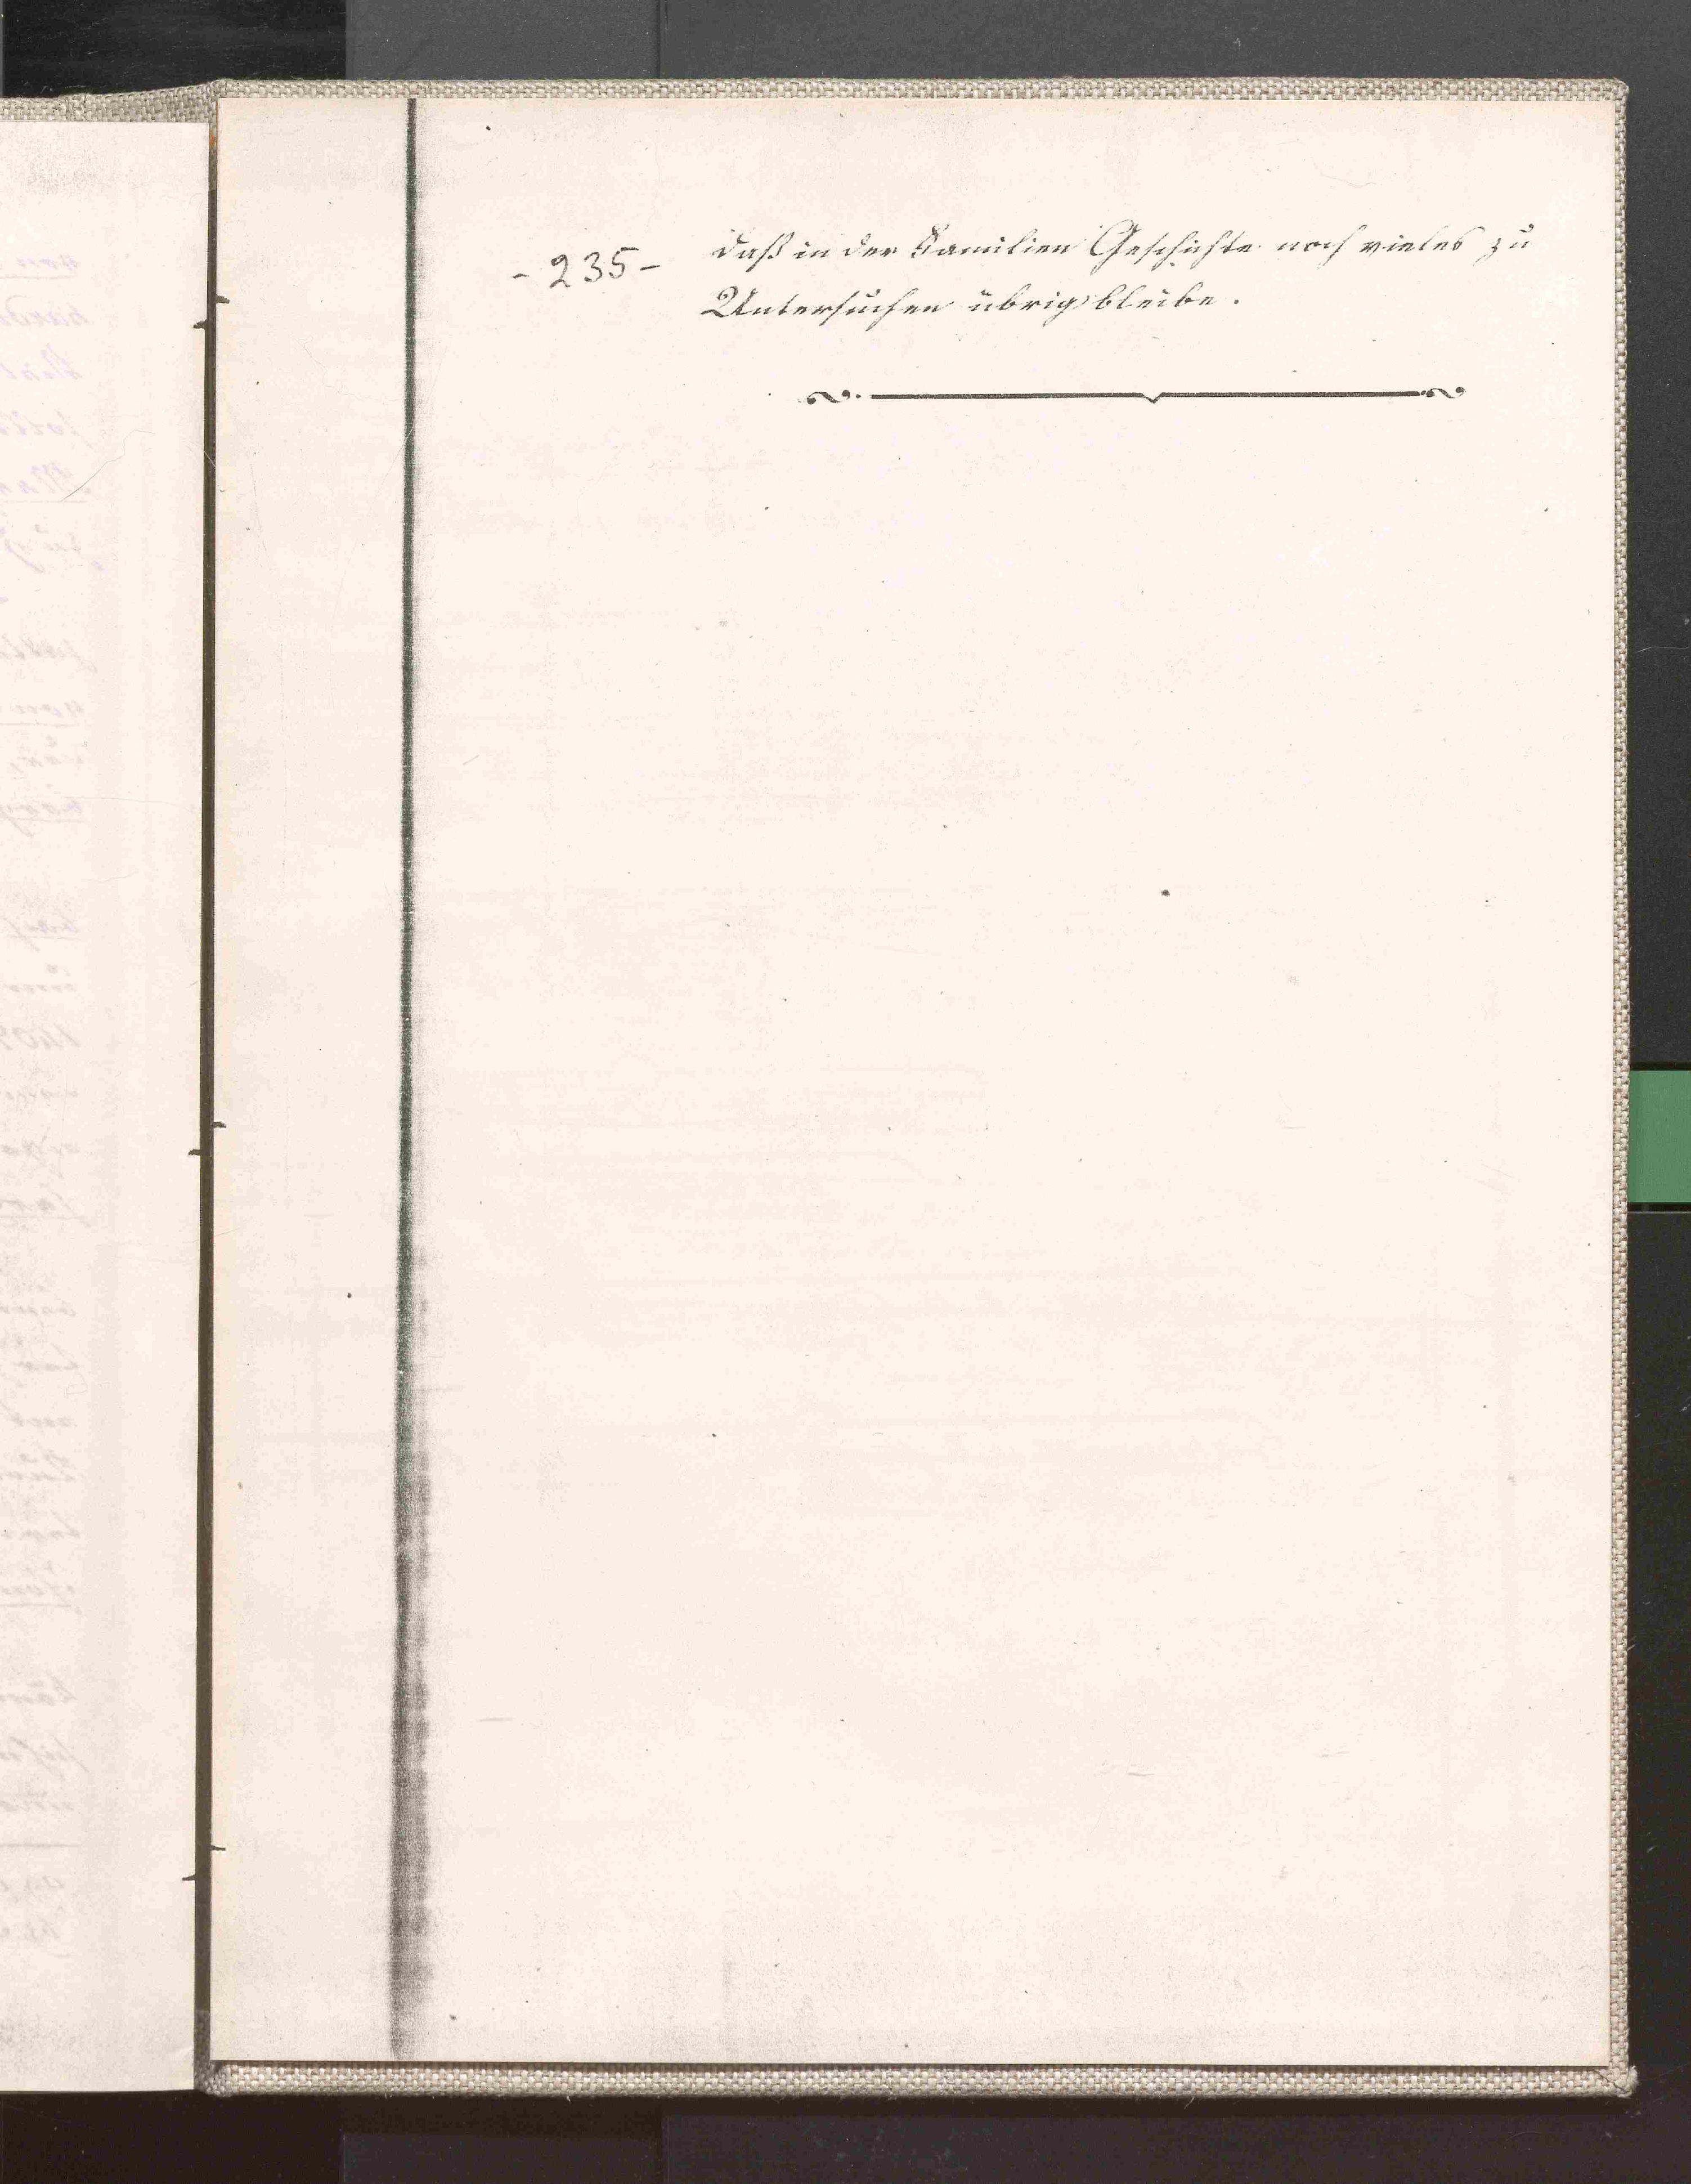 - 235 -
daß in der Familien Geschichte noch vieles zu
Untersuchen übrig bleibe.